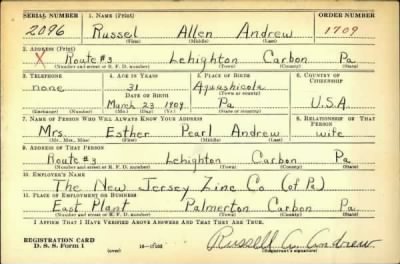 SERIAL NUMBER 1. NAME (Print) ORDER NUMBER
2096 Russel Allen Andrew 1709
(First) (Middle) (Last)
2. ADDRESS (Print)
X Route #3 Lehighton Carbon Pa
(Number and street or R. F. D. number) (Town) (County) (State)
3. TELEPHONE 4. AGE IN YEARS 5. PLACE OF BIRTH 6. COUNTRY OF CITIZENSHIP
none 31 Aquashicola
DATE OF BIRTH (Town or county)
March 23 1909 Pa U.S.A.
(Exchange) (Number) (Mo.) (Day) (Yr.) (State or country)
7. NAME OF PERSON WHO WILL ALWAYS KNOW YOUR ADDRESS 8. RELATIONSHIP OF THAT PERSON
Mrs. Esther Pearl Andrew wife
(Mr., Mrs., Miss) (First) (Middle) (Last)
9. ADDRESS OF THAT PERSON
Route #3 Lehighton Carbon Pa
(Number and street or R. F. D. number) (Town) (County) (State)
10. EMPLOYER'S NAME
The New Jersey Zinc Co (of Pa)
11. PLACE OF EMPLOYMENT OR BUSINESS
East Plant Palmerton Carbon Pa
(Number and street or R. F. D. number) (Town) (County) (State)
I AFFIRM THAT I HAVE VERIFIED ABOVE ANSWERS AND THAT THEY ARE TRUE.
REGISTRATION CARD
D. S. S. Form 1 (over) Russell A. Andrew
(Registrant's signature)